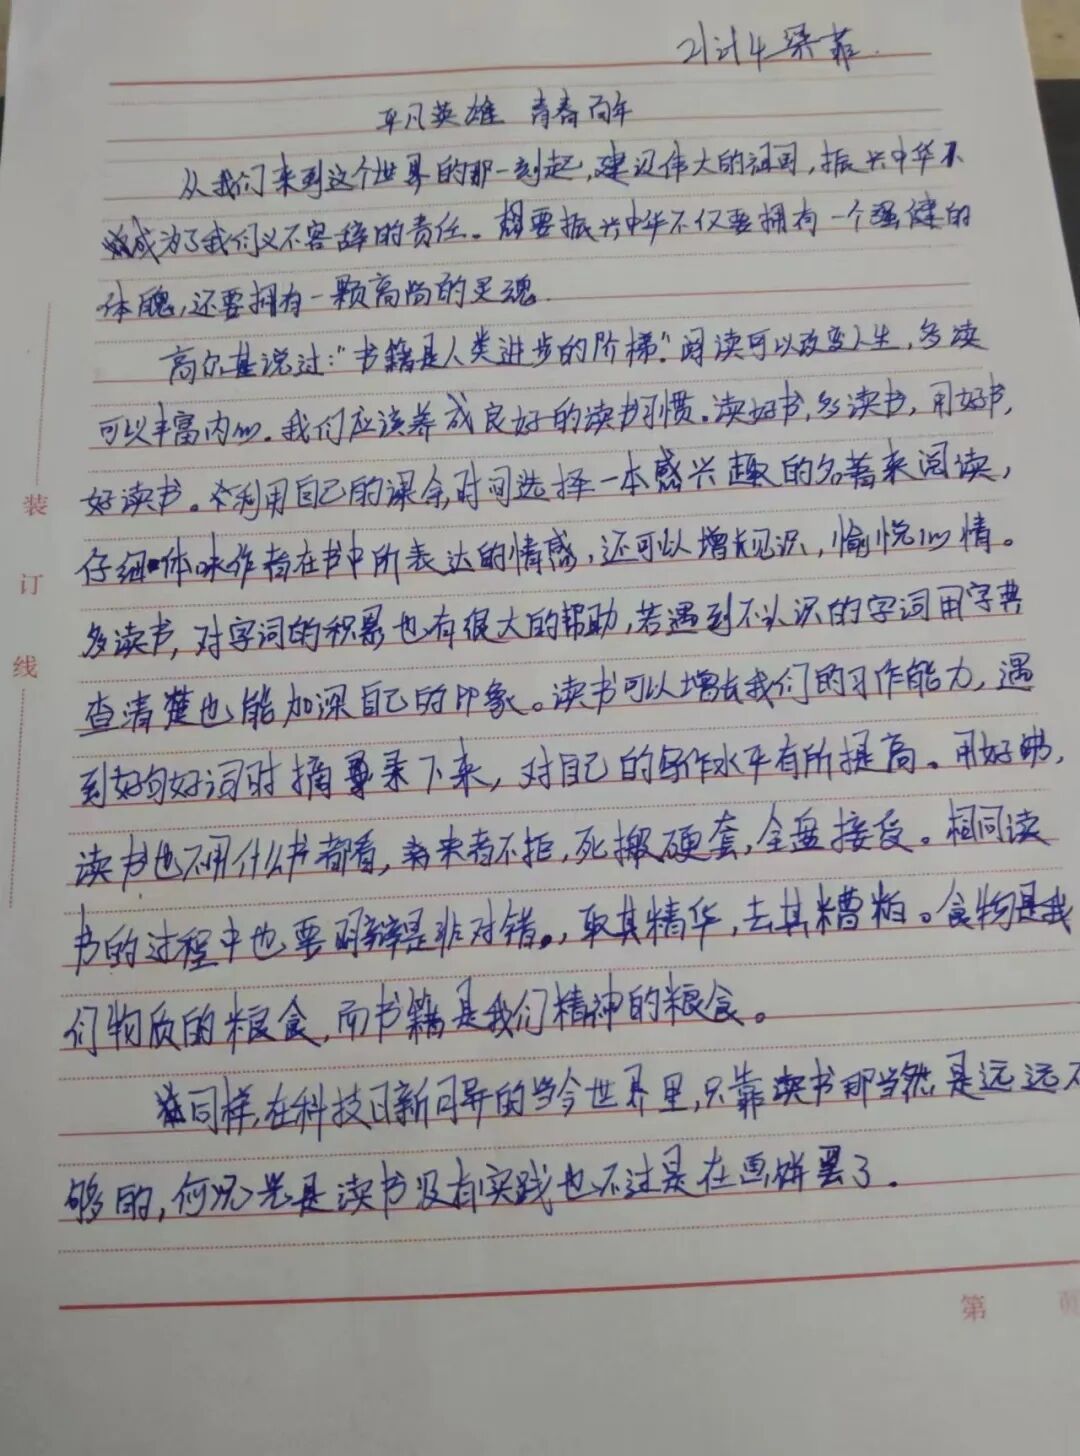 21计4 梁菲.
平凡英雄 青春百年
从我们来到这个世界的那一刻起,建设伟大的祖国,振兴中华不
成为了我们义不容辞的责任。想要振兴中华不仅要拥有一个强健的
体魄,还要拥有一颗高尚的灵魂.
高尔基说过:"书籍是人类进步的阶梯."阅读可以改变人生,多读
可以丰富内心.我们应该养成良好的读书习惯.读好书,多读书,用好书,
好读书。利用自己的课余时间选择一本感兴趣的名著来阅读,
仔细体味作者在书中所表达的情感,还可以增长见识,愉悦心情。
多读书,对字词的积累也有很大的帮助,若遇到不认识的字词用字典
查清楚也能加深自己的印象。读书可以增长我们的习作能力,遇
到好句好词时摘录下来,对自己的写作水平有所提高。用好书,
读书也不用什么书都看,来者不拒,死搬硬套,全盘接受。相同读
书的过程中也要明辨是非对错,取其精华,去其糟粕。食物是我
们物质的粮食,而书籍是我们精神的粮食。
同样,在科技日新月异的当今世界里,只靠读书那当然是远远不
够的,何况光是读书没有实践也不过是在画饼罢了.
装
订
线
第 页